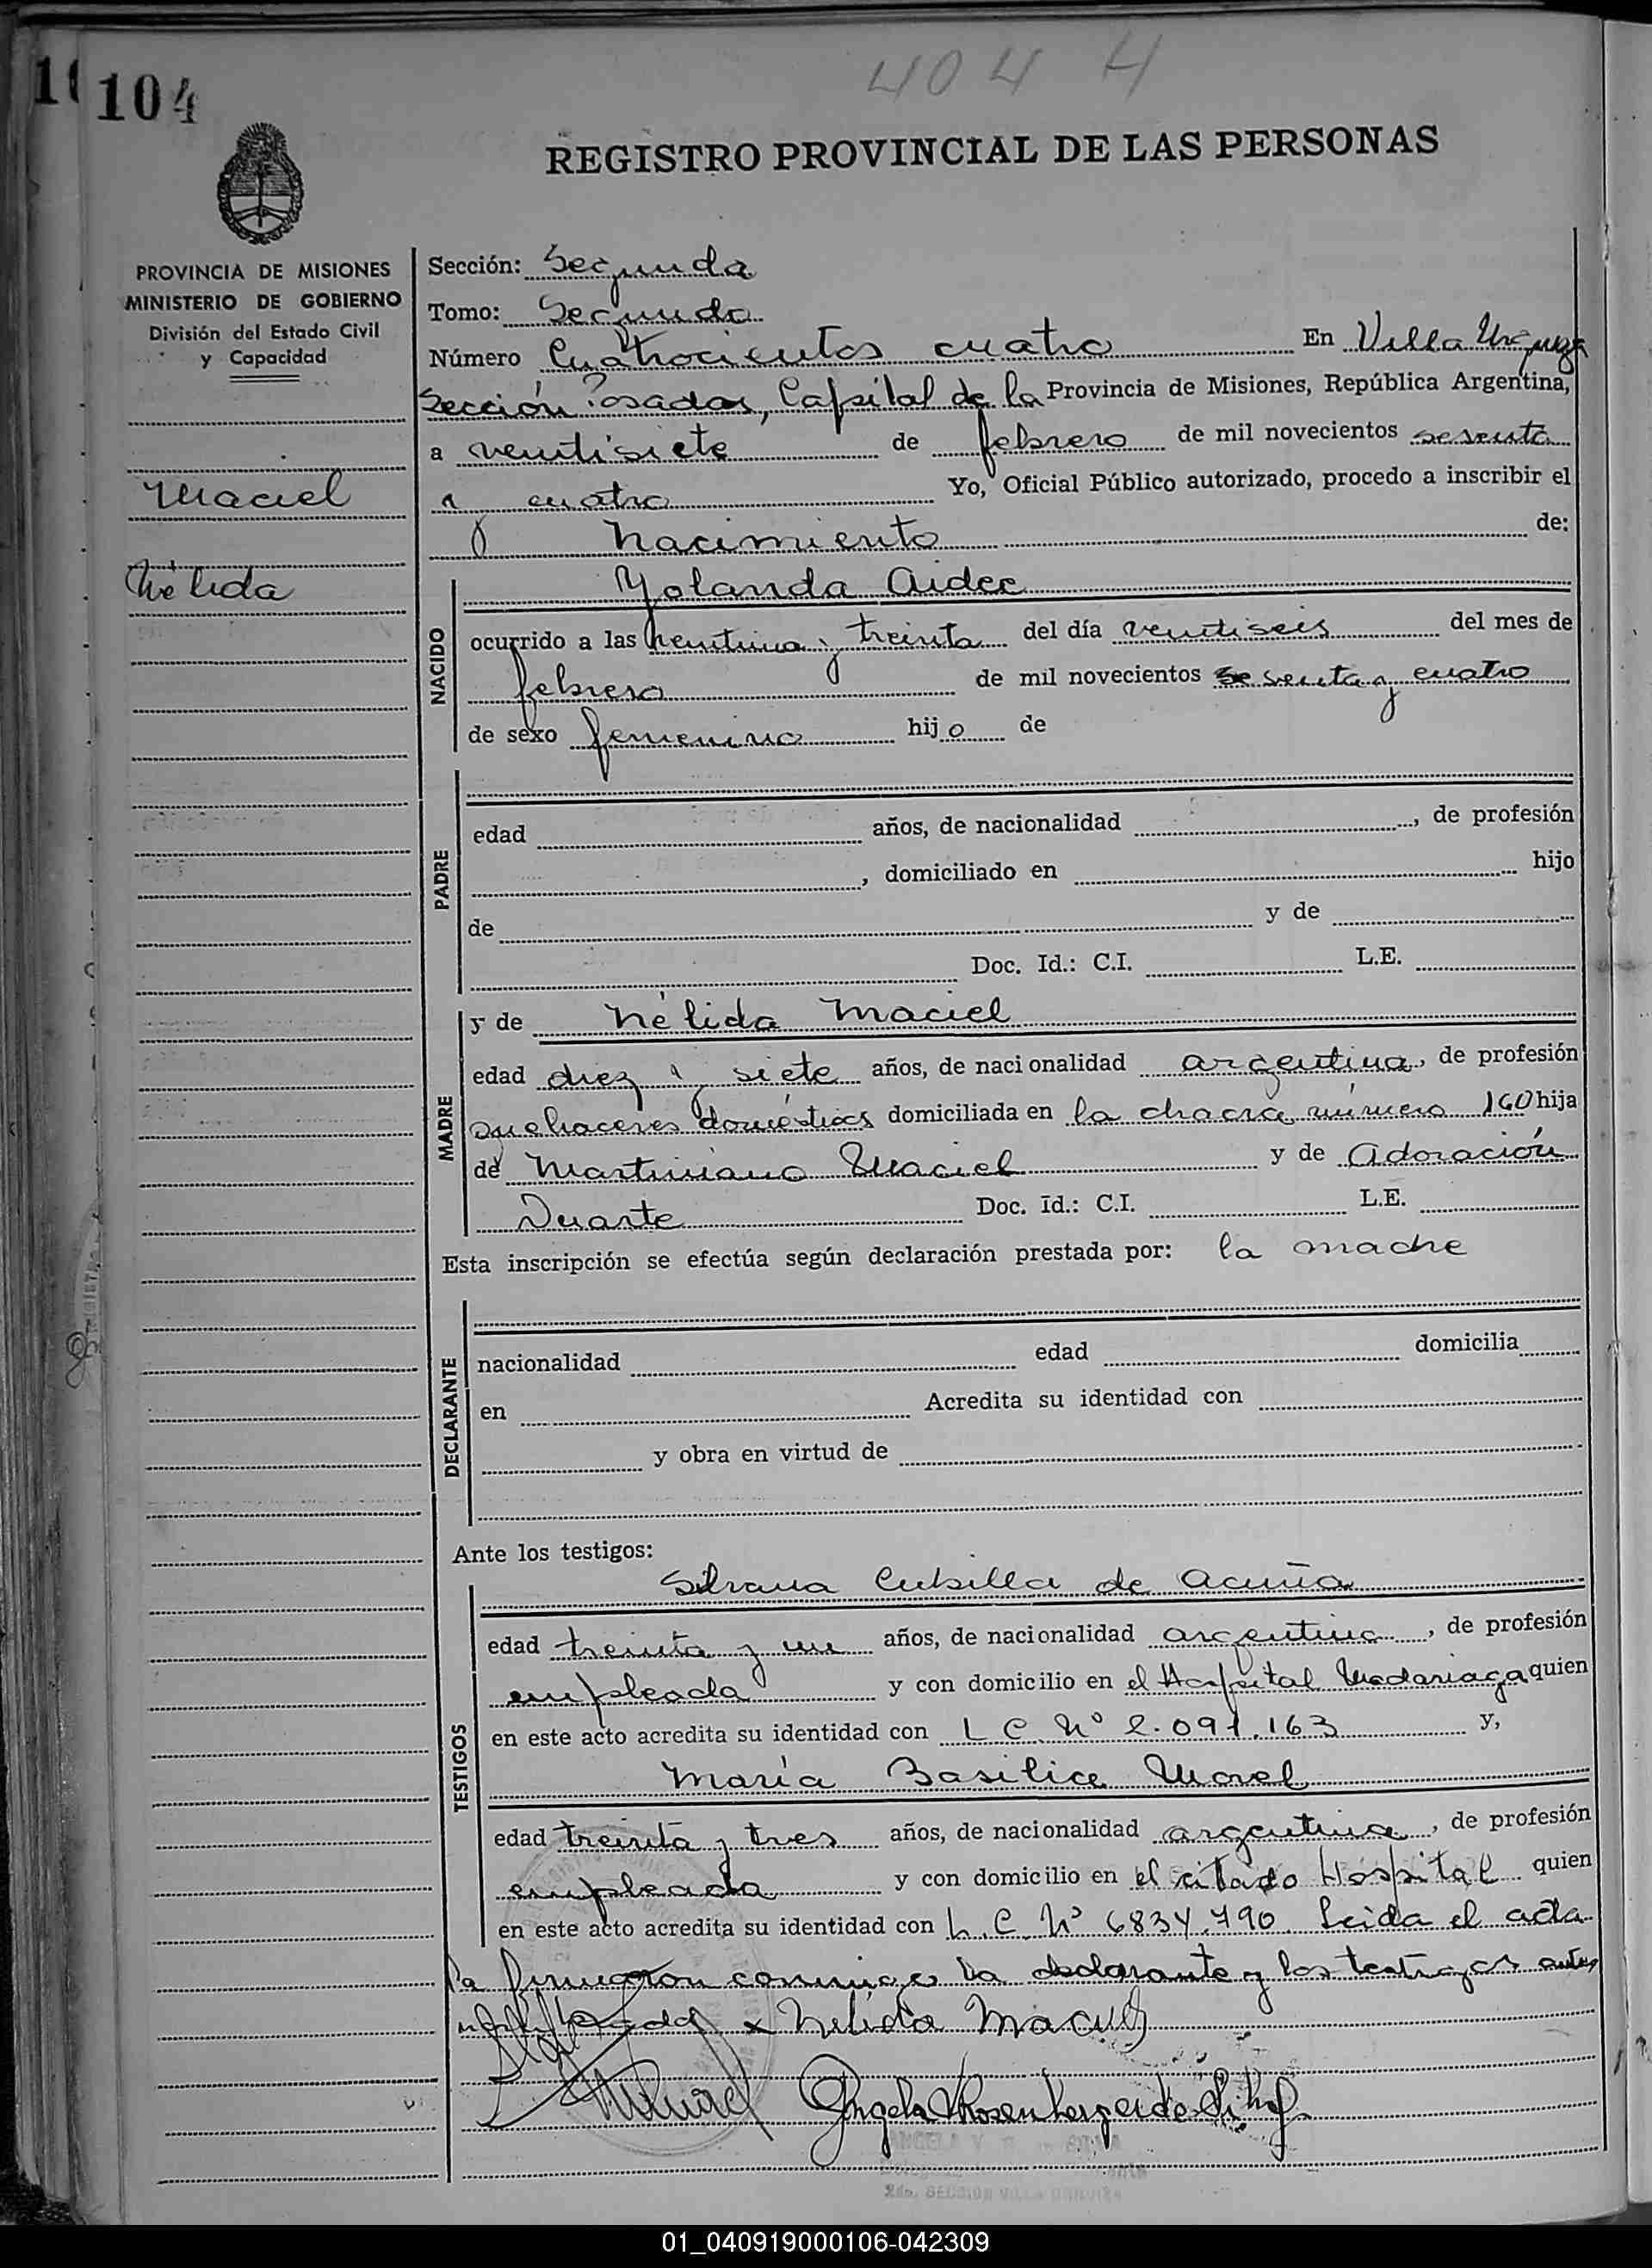 104
404 4
REGISTRO PROVINCIAL DE LAS PERSONAS
PROVINCIA DE MISIONES
MINISTERIO DE GOBIERNO
División del Estado Civil
y Capacidad
Maciel
Nélida
Sección: Segunda
Tomo: Segundo
Número Cuatrocientos cuatro En Villa Urquiza
Sección Posadas, Capital de la Provincia de Misiones, República Argentina,
a ventisiete de febrero de mil novecientos sesenta
y cuatro Yo, Oficial Público autorizado, procedo a inscribir el
nacimiento de:
NACIDO
Yolanda Aidee
ocurrido a las ventiuna y treinta del día ventiseis del mes de
febrero de mil novecientos sesenta y cuatro
de sexo femenino hijo de
PADRE
edad años, de nacionalidad , de profesión
, domiciliado en hijo
de y de
Doc. Id.: C.I. L.E.
MADRE
y de Nélida Maciel
edad diez y siete años, de nacionalidad argentina, de profesión
quehaceres domésticos domiciliada en la chacra número 160 hija
de Martiniano Maciel y de Adoración
Duarte Doc. Id.: C.I. L.E.
Esta inscripción se efectúa según declaración prestada por: la madre
DECLARANTE
nacionalidad edad domicilia
en Acredita su identidad con
y obra en virtud de
Ante los testigos:
TESTIGOS
Silvana Cubilla de Acuña
edad treinta y un años, de nacionalidad argentina, de profesión
empleada y con domicilio en el Hospital Madariaga quien
en este acto acredita su identidad con L C Nº 2.091.163 y,
María Basilice Morel
edad treinta y tres años, de nacionalidad argentina, de profesión
empleada y con domicilio en el citado Hospital quien
en este acto acredita su identidad con L. C. Nº 6834.790 Leida el acta
la firmaron conmigo la declarante y los testigos antes
x Nelida Maciel
Angela
01_040919000106-042309